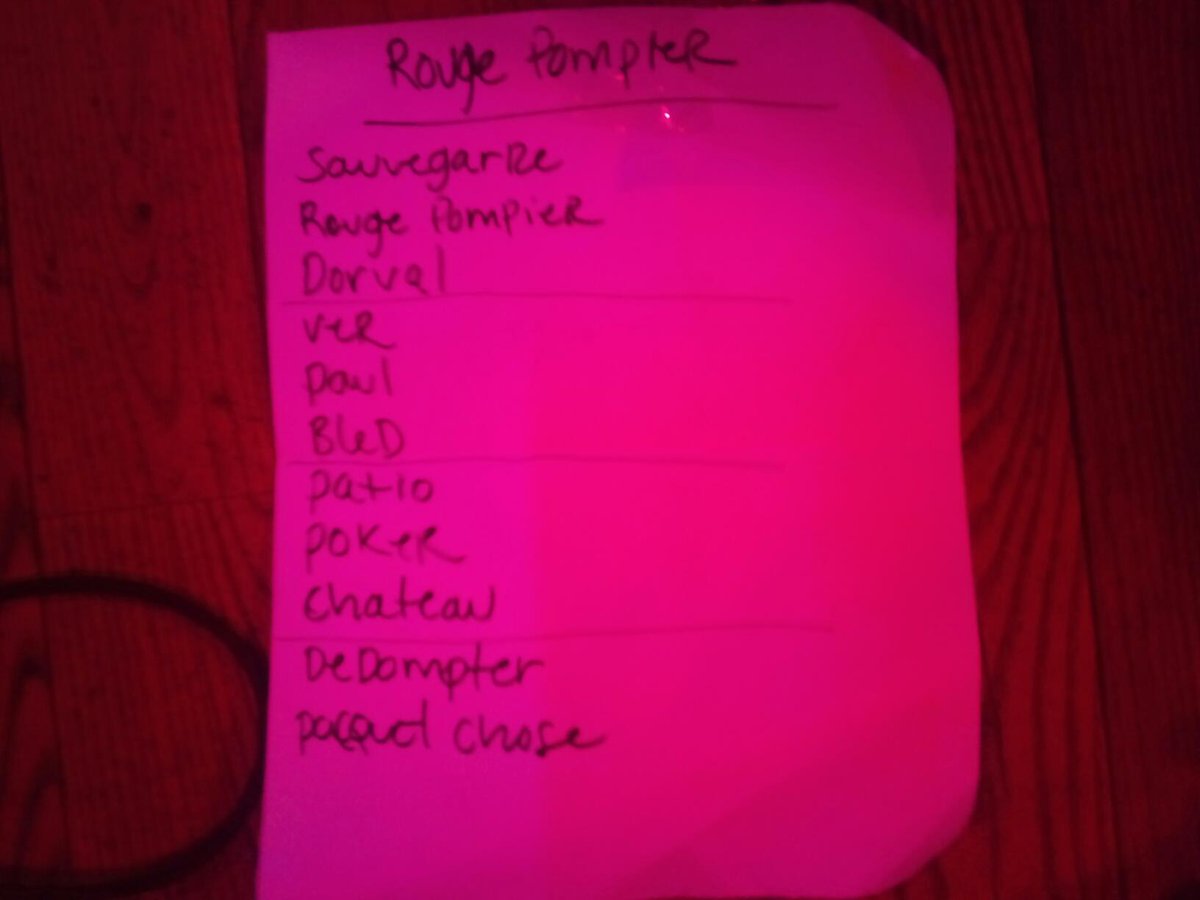 Rouge Pompier
Sauvegarde
Rouge Pompier
Dorval
Ver
Paul
Bled
Patio
Poker
Chateau
Dedompter
chose